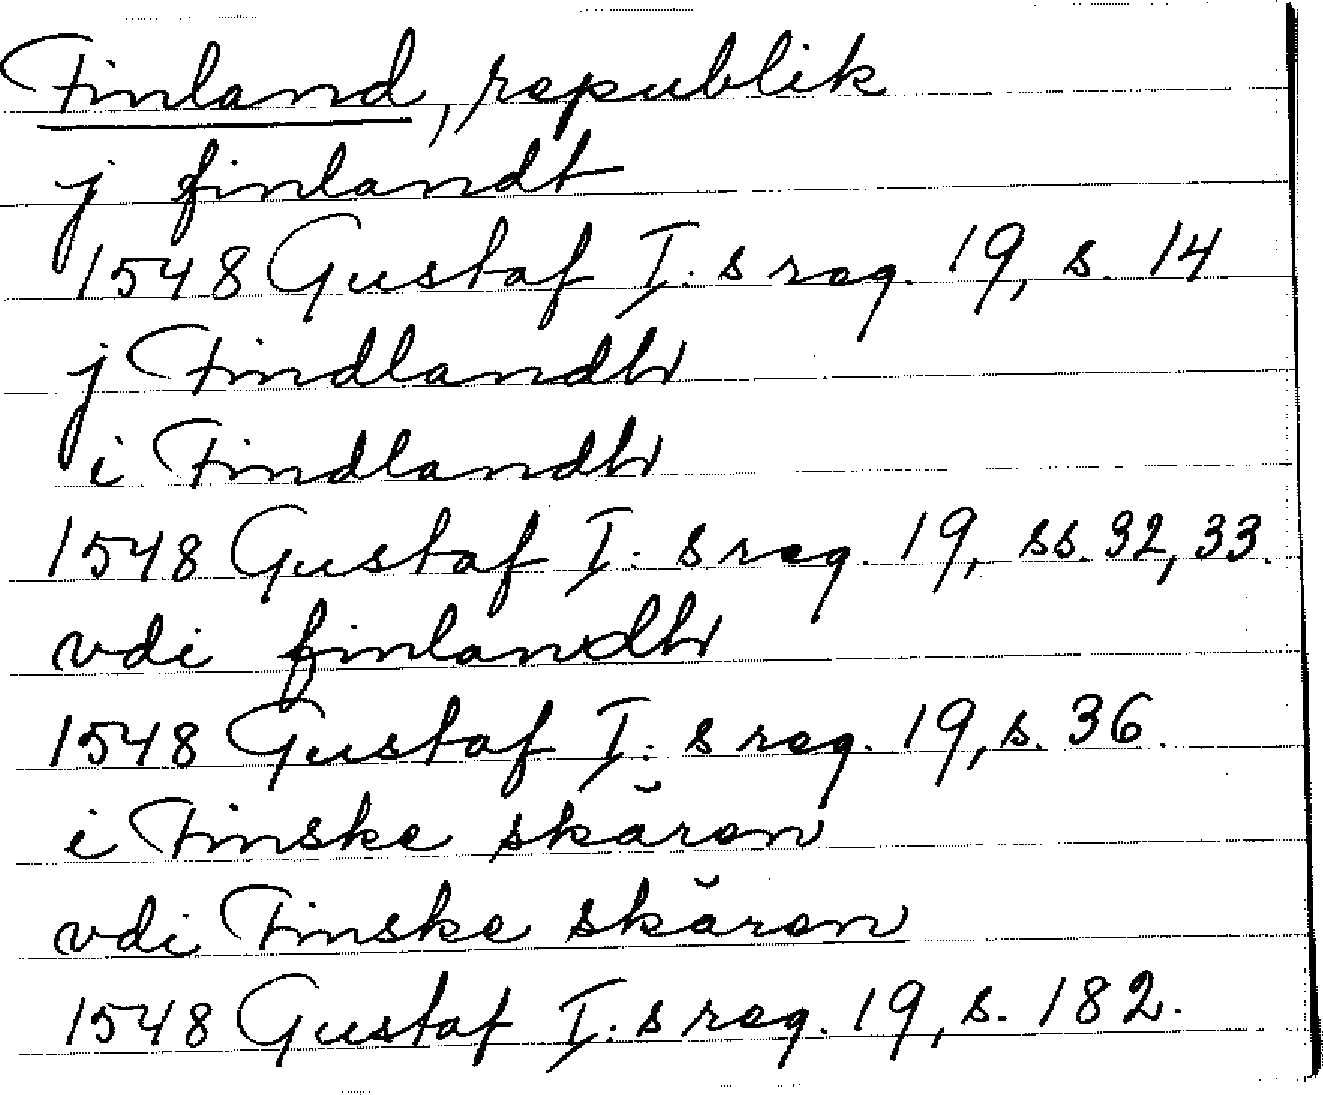 Finland, republik
j finlandt
1548 Gustaf I:s reg. 19, s. 14
j Findlandtr
i Findlandtr
1548 Gustaf I:s reg. 19, ss. 32, 33.
vdi finlandtr
1548 Gustaf I:s reg. 19, s. 36.
i Finske skären
vdi Finske skären
1548 Gustaf I:s reg. 19, s. 182.